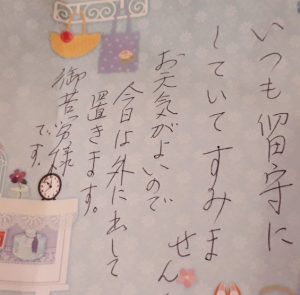 いつも留守に
していてすみま
せん
お天気がよいので
今日は外に出して
置きます。
御苦労様
です。